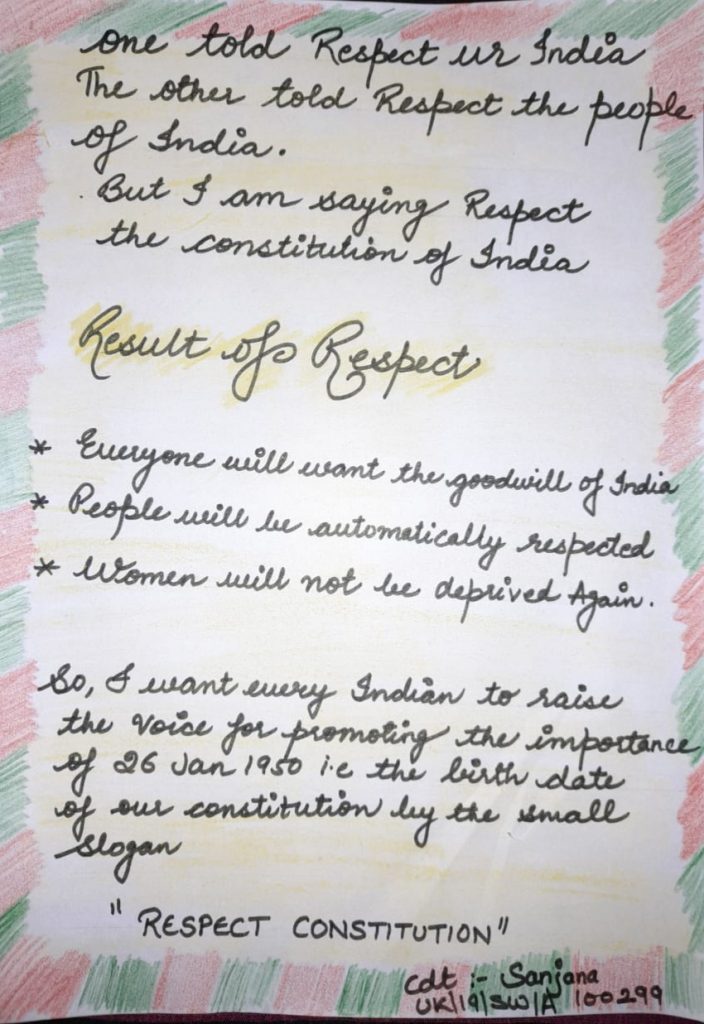 one told Respect ur India
The other told Respect the people
of India.
But I am saying Respect
the constitution of India
Result of Respect
* Everyone will want the goodwill of India
* People will be automatically respected
* Women will not be deprived Again.
So, I want every Indian to raise
the Voice for promoting the importance
of 26 Jan 1950 i.e the birth date
of our constitution by the small
slogan
"RESPECT CONSTITUTION"
cdt :- Sanjana
UK/19/SW/A 100299